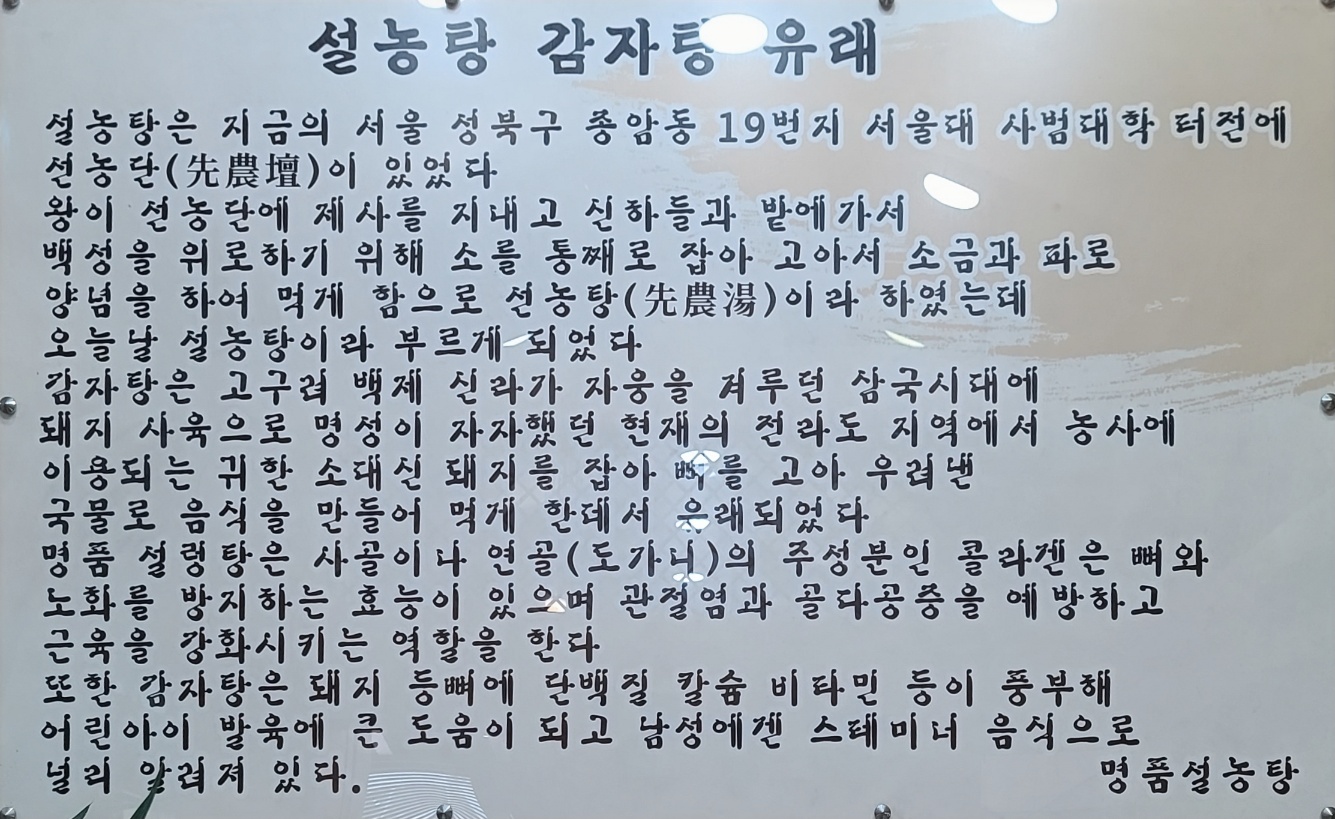 설농탕 감자탕 유래
설농탕은 지금의 서울 성북구 종암동 19번지 서울대 사범대학 터전에
선농단(先農壇)이 있었다
왕이 선농단에 제사를 지내고 신하들과 밭에가서
백성을 위로하기 위해 소를 통째로 잡아 고아서 소금과 파로
양념을 하여 먹게 함으로 선농탕(先農湯)이라 하였는데
오늘날 설농탕이라 부르게 되었다
감자탕은 고구려 백제 신라가 자웅을 겨루던 삼국시대에
돼지 사육으로 명성이 자자했던 현재의 전라도 지역에서 농사에
이용되는 귀한 소대신 돼지를 잡아 뼈를 고아 우려낸
국물로 음식을 만들어 먹게 한데서 유래되었다
명품 설렁탕은 사골이나 연골(도가니)의 주성분인 콜라겐은 뼈와
노화를 방지하는 효능이 있으며 관절염과 골다공증을 예방하고
근육을 강화시키는 역할을 한다
또한 감자탕은 돼지 등뼈에 단백질 칼슘 비타민 등이 풍부해
어린아이 발육에 큰 도움이 되고 남성에겐 스테미너 음식으로
널리 알려져 있다.
명품설농탕